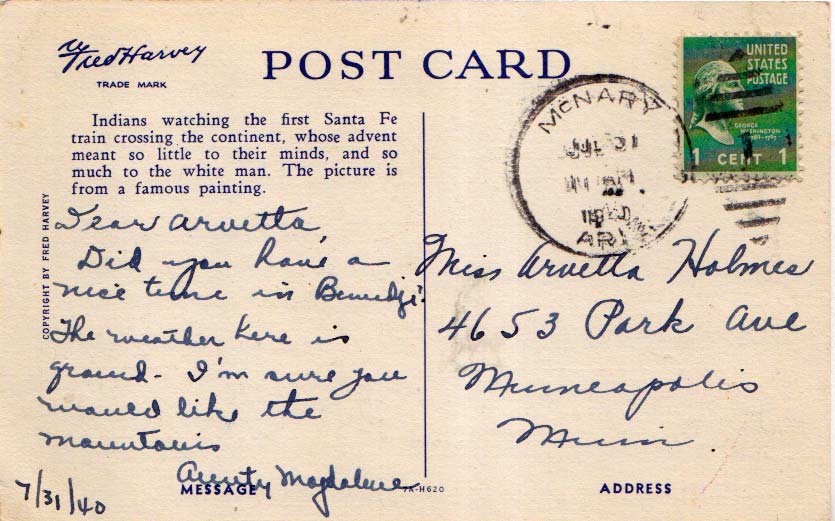 Fred Harvey
TRADE MARK
POST CARD
Indians watching the first Santa Fe
train crossing the continent, whose advent
meant so little to their minds, and so
much to the white man. The picture is
from a famous painting.
COPYRIGHT BY FRED HARVEY
Dear Arvetta
Did you have a
nice time in Bemidji?
The weather here is
grand - I'm sure you
would like the
mountains
Aunty Magdalene
7/31/40
MESSAGE
7A-H620
MCNARY
JUL 31
AM
1940
ARIZ
UNITED
STATES
POSTAGE
GEORGE
WASHINGTON
1789-1797
1 CENT 1
Miss Arvetta Holmes
4653 Park Ave
Minneapolis
Minn
ADDRESS